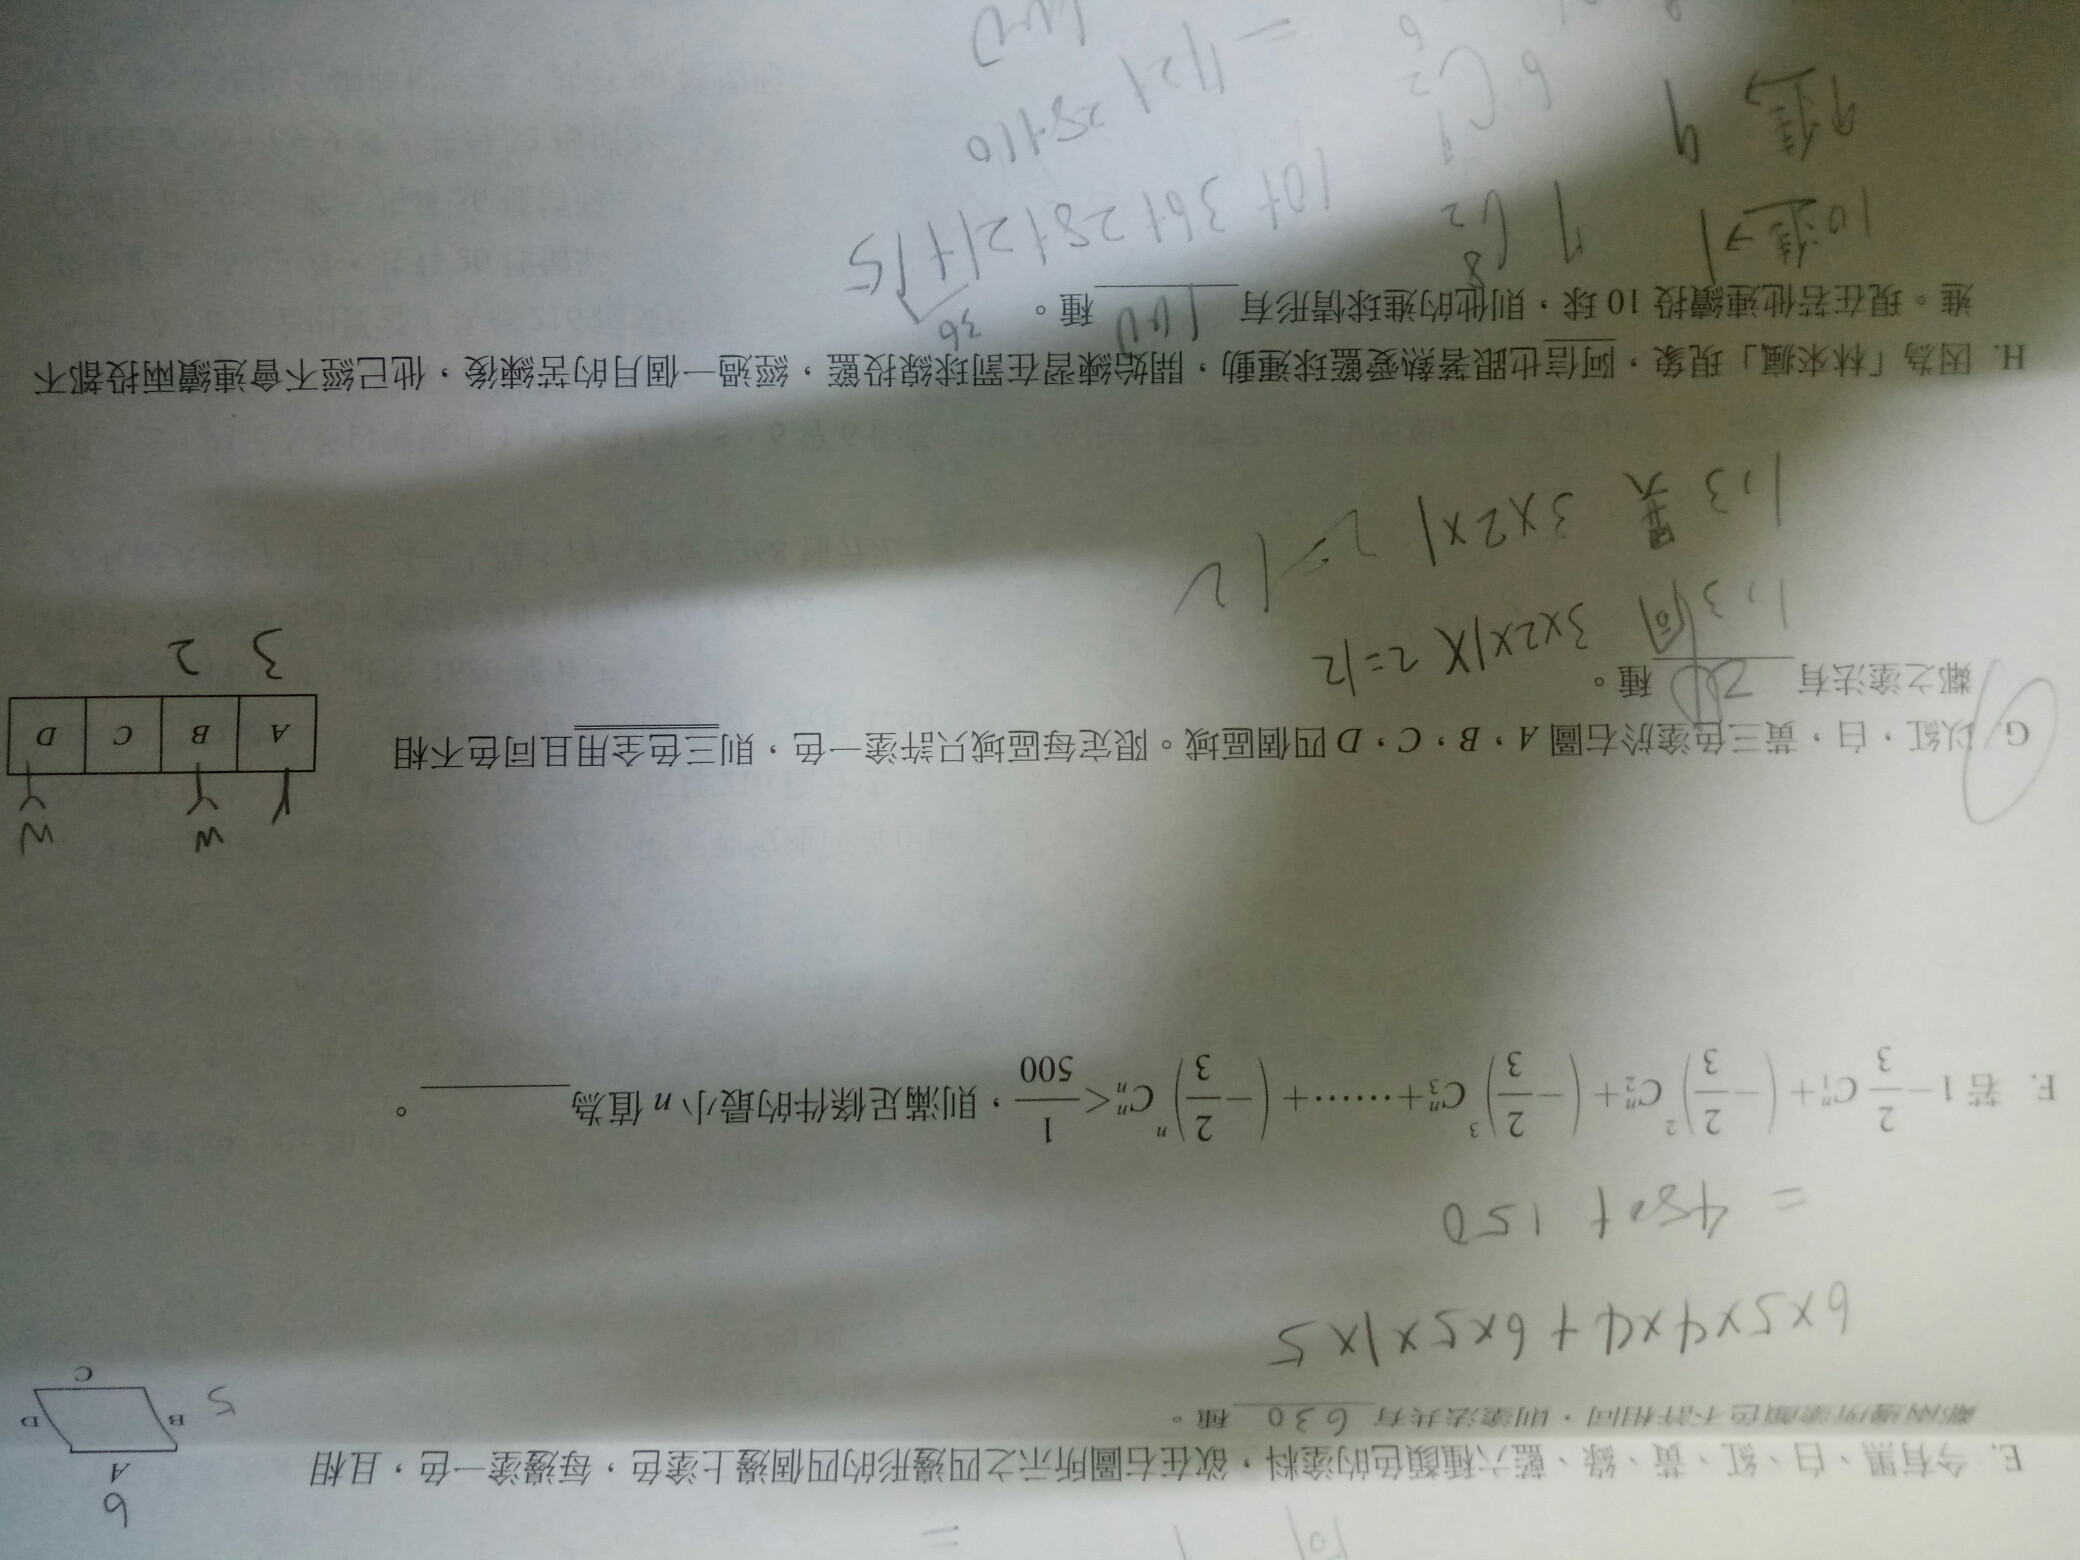 E. 今有黑、白、紅、黃、綠、藍六種顏色的塗料,欲在右圖所示之四邊形的四個邊上塗色,每邊塗一色,且相
鄰兩邊所塗顏色不許相同,則塗法共有 630 種。
6
A
B
C
D
5
6x5x4x4+6x5x1x5
= 480+150
F. 若 1-2/3 C^n_1+(-2/3)^2 C^n_2+(-2/3)^3 C^n_3+……+(-2/3)^n C^n_n<1/500,則滿足條件的最小 n 值為________。
G. 以紅、白、黃三色塗於右圖 A、B、C、D 四個區域。限定每區域只許塗一色,則三色全用且同色不相
鄰之塗法有 種。
Y W W
Y Y
A B C D
3 2
1,3同 3x2x1x2=12
1,3異 3x2x1 2=12
H. 因為「林來瘋」現象,阿信也跟著熱愛籃球運動,開始練習在罰球線投籃,經過一個月的苦練後,他已經不會連續兩投都不
進。現在若他連續投 10 球,則他的進球情形有 種。
36
10進→1 7 C^8_2 10+36+28+21+15
9進 9 6 C^7_2
28+110